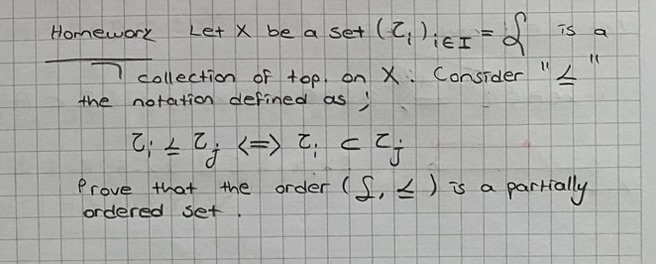 Homework Let X be a set (τᵢ)ᵢ∈I = ʆ is a
collection of top. on X. Consider "≤"
the notation defined as;
τᵢ ≤ τⱼ <=> τᵢ ⊂ τⱼ
Prove that the order (ʆ, ≤) is a partially
ordered set.